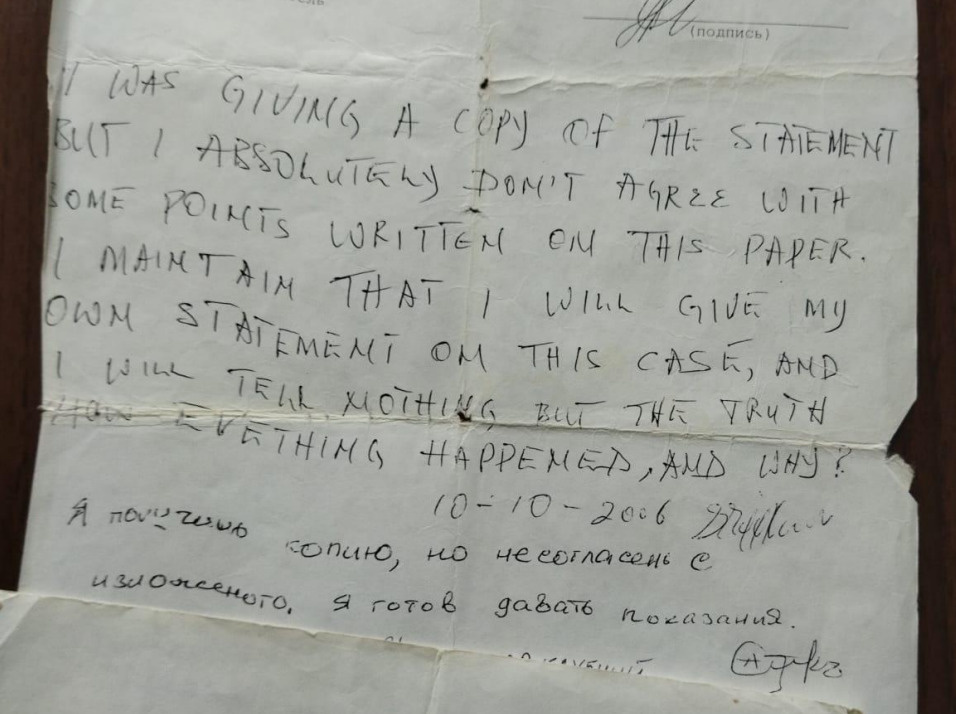 (подпись)
I WAS GIVING A COPY OF THE STATEMENT
BUT I ABSOLUTELY DON'T AGREE WITH
SOME POINTS WRITTEN ON THIS PAPER.
I MAINTAIN THAT I WILL GIVE MY
OWN STATEMENT ON THIS CASE, AND
I WILL TELL NOTHING BUT THE TRUTH
HOW EVETHING HAPPENED, AND WHY?
10-10-2006
Я
копию, но не согласень с
изложеного. Я готов давать показания.